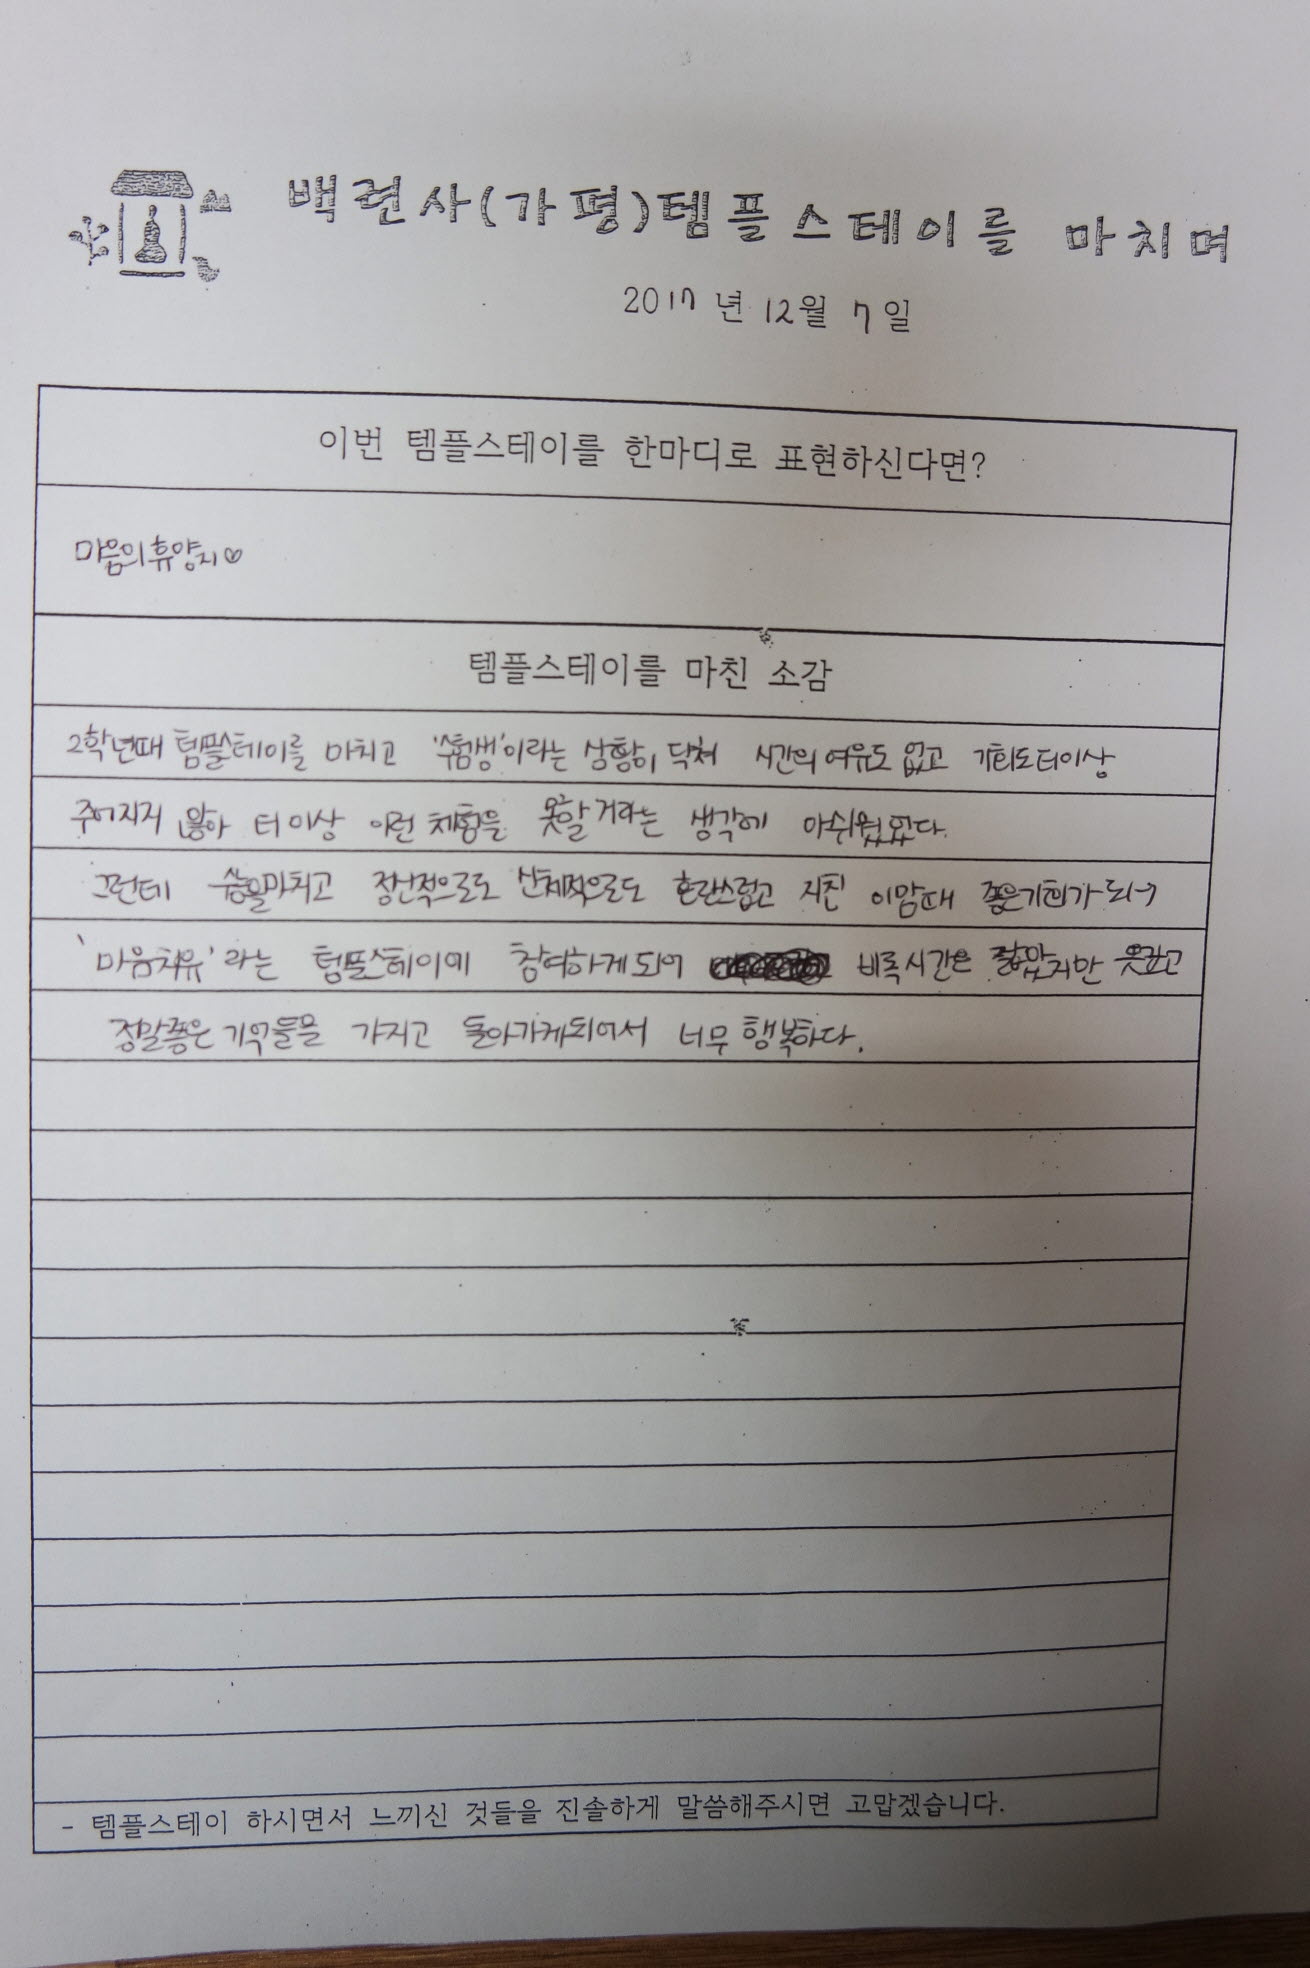 백련사(가평)템플스테이를 마치며
2017년 12월 7일
이번 템플스테이를 한마디로 표현하신다면?
마음의휴양지♡
템플스테이를 마친 소감
2학년때 템플스테이를 마치고 '수험생'이라는 상황이 닥쳐 시간의 여유도 없고 기회도 더이상
주어지지 않아 더 이상 이런 체험을 못할거라는 생각에 아쉬웠었다.
그런데 수능을마치고 정신적으로도 신체적으로도 혼란스럽고 지친 이맘때 좋은기회가 되어
'마음치유'라는 템플스테이에 참여하게되어 비록시간은 짧았지만 뜻깊고
정말좋은 기억들을 가지고 돌아가게되어서 너무 행복하다.
- 템플스테이 하시면서 느끼신 것들을 진솔하게 말씀해주시면 고맙겠습니다.